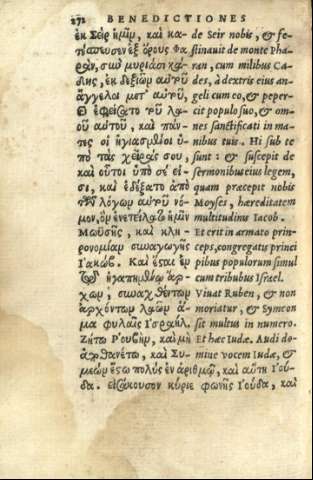 272 BENEDICTIONES
ἐκ Σεὶρ ἡμῖν, καὶ κα-
τέσπευσεν ἐξ ὄρους Φα
ρὰν, σὺν μυριάσι Κά-
δης, ἐκ δεξιῶν αὐτοῦ
ἄγγελοι μετ' αὐτοῦ,
καὶ ἐφείσατο τοῦ λα-
οῦ αὐτοῦ, καὶ πάν-
τες οἱ ἡγιασμένοι ὑ-
πὸ τὰς χεῖράς σου,
καὶ οὗτοι ὑπὸ σέ εἰ-
σι, καὶ ἐδέξατο ἀπὸ
τῶν λόγων αὐτοῦ νό-
μον, ὃν ἐνετείλατο ἡμῖν
Μωϋσῆς, καὶ κλη-
ρονομίαν συναγωγῆς
Ἰακώβ. Καὶ ἔσται ἐν
τῷ ἠγαπημένῳ ἄρ-
χων, συναχθέντων
ἀρχόντων λαῶν ἅ-
μα φυλαῖς Ἰσραήλ.
Ζήτω Ῥουβὴν, καὶ μὴ
ἀποθανέτω, καὶ Συ-
μεὼν ἔστω πολὺς ἐν ἀριθμῷ, καὶ αὕτη Ἰού-
δα. εἰσάκουσον κύριε φωνῆς Ἰούδα, καὶ
de Seir nobis, & fe-
stinauit de monte Pha-
ran, cum milibus Ca-
des, à dextris eius an-
geli cum eo, & peper-
cit populo suo, & om-
nes sanctificati in ma-
nibus tuis. Hi sub te
sunt: & suscepit de
sermonibus eius legem,
quam præcepit nobis
Moyses, hæreditatem
multitudinis Iacob.
Et erit in armato prin-
ceps, congregatis princi
pibus populorum simul
cum tribubus Israel.
Viuat Ruben, & non
moriatur, & Symeon
sit multus in numero.
Et hæc Iudæ. Audi do-
mine vocem Iudæ, &